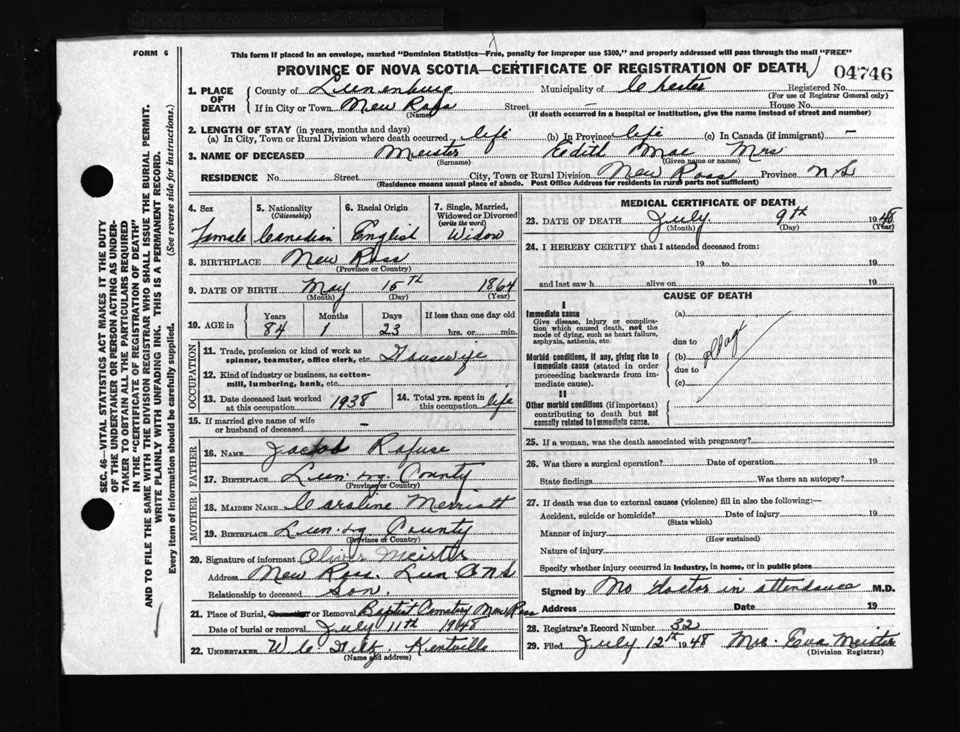 FORM 6
This form if placed in an envelope, marked "Dominion Statistics—Free, penalty for improper use $300," and properly addressed will pass through the mail "FREE"
PROVINCE OF NOVA SCOTIA—CERTIFICATE OF REGISTRATION OF DEATH
04746
SEC. 46—VITAL STATISTICS ACT MAKES IT THE DUTY
OF THE UNDERTAKER OR PERSON ACTING AS UNDER-
TAKER TO OBTAIN ALL THE PARTICULARS REQUIRED
IN THE "CERTIFICATE OF REGISTRATION OF DEATH"
AND TO FILE THE SAME WITH THE DIVISION REGISTRAR WHO SHALL ISSUE THE BURIAL PERMIT.
WRITE PLAINLY WITH UNFADING INK. THIS IS A PERMANENT RECORD.
Every item of information should be carefully supplied. (See reverse side for instructions.)
1. PLACE OF DEATH
County of Lunenburg Municipality of Chester Registered No.
(For use of Registrar General only)
If in City or Town New Ross Street — House No.
(Name) (If death occurred in a hospital or institution, give the name instead of street and number)
2. LENGTH OF STAY (in years, months and days)
(a) In City, Town or Rural Division where death occurred life (b) In Province life (c) In Canada (if immigrant) —
3. NAME OF DECEASED Meister Edith Mae Mrs
(Surname) (Given name or names)
RESIDENCE No. Street City, Town or Rural Division New Ross Province N S
(Residence means usual place of abode. Post Office Address for residents in rural parts not sufficient)
4. Sex Female
5. Nationality (Citizenship) Canadian
6. Racial Origin English
7. Single, Married, Widowed or Divorced (write the word) Widow
8. BIRTHPLACE New Ross
(Province or Country)
9. DATE OF BIRTH May 15th 1864
(Month) (Day) (Year)
10. AGE in Years 84 Months 1 Days 23 If less than one day old hrs. or min.
OCCUPATION
11. Trade, profession or kind of work as spinner, teamster, office clerk, etc. Housewife
12. Kind of industry or business, as cotton-mill, lumbering, bank, etc.
13. Date deceased last worked at this occupation 1938
14. Total yrs. spent in this occupation life
15. If married give name of wife or husband of deceased —
FATHER
16. NAME Jacob Rafuse
17. BIRTHPLACE Lun'bg County
(Province or Country)
MOTHER
18. MAIDEN NAME Caroline Merriatt
19. BIRTHPLACE Lun.bg County
(Province or Country)
20. Signature of informant Oliver Meister
Address New Ross. Lun Co N S
Relationship to deceased Son.
21. Place of Burial, Cremation or Removal Baptist Cemetry New Ross
Date of burial or removal July 11th 1948
22. UNDERTAKER Kentville
(Name and address)
MEDICAL CERTIFICATE OF DEATH
23. DATE OF DEATH July 9th 1948
(Month) (Day) (Year)
24. I HEREBY CERTIFY that I attended deceased from:
19 to 19
and last saw h alive on 19
CAUSE OF DEATH
I
Immediate cause
Give disease, injury or complication which caused death, not the mode of dying, such as heart failure, asphyxia, asthenia, etc.
(a)
due to
Morbid conditions, if any, giving rise to immediate cause (stated in order proceeding backwards from immediate cause).
(b)
due to
(c)
II
Other morbid conditions (if important) contributing to death but not causally related to immediate cause.
25. If a woman, was the death associated with pregnancy?
26. Was there a surgical operation? Date of operation 19
State findings Was there an autopsy?
27. If death was due to external causes (violence) fill in also the following:—
Accident, suicide or homicide? Date of injury 19
(State which)
Manner of injury
(How sustained)
Nature of injury
Specify whether injury occurred in industry, in home, or in public place
Signed by No doctor in attendance M.D.
Address Date 19
28. Registrar's Record Number 32
29. Filed July 12th 1948 Mrs. Eva Meister
(Division Registrar)